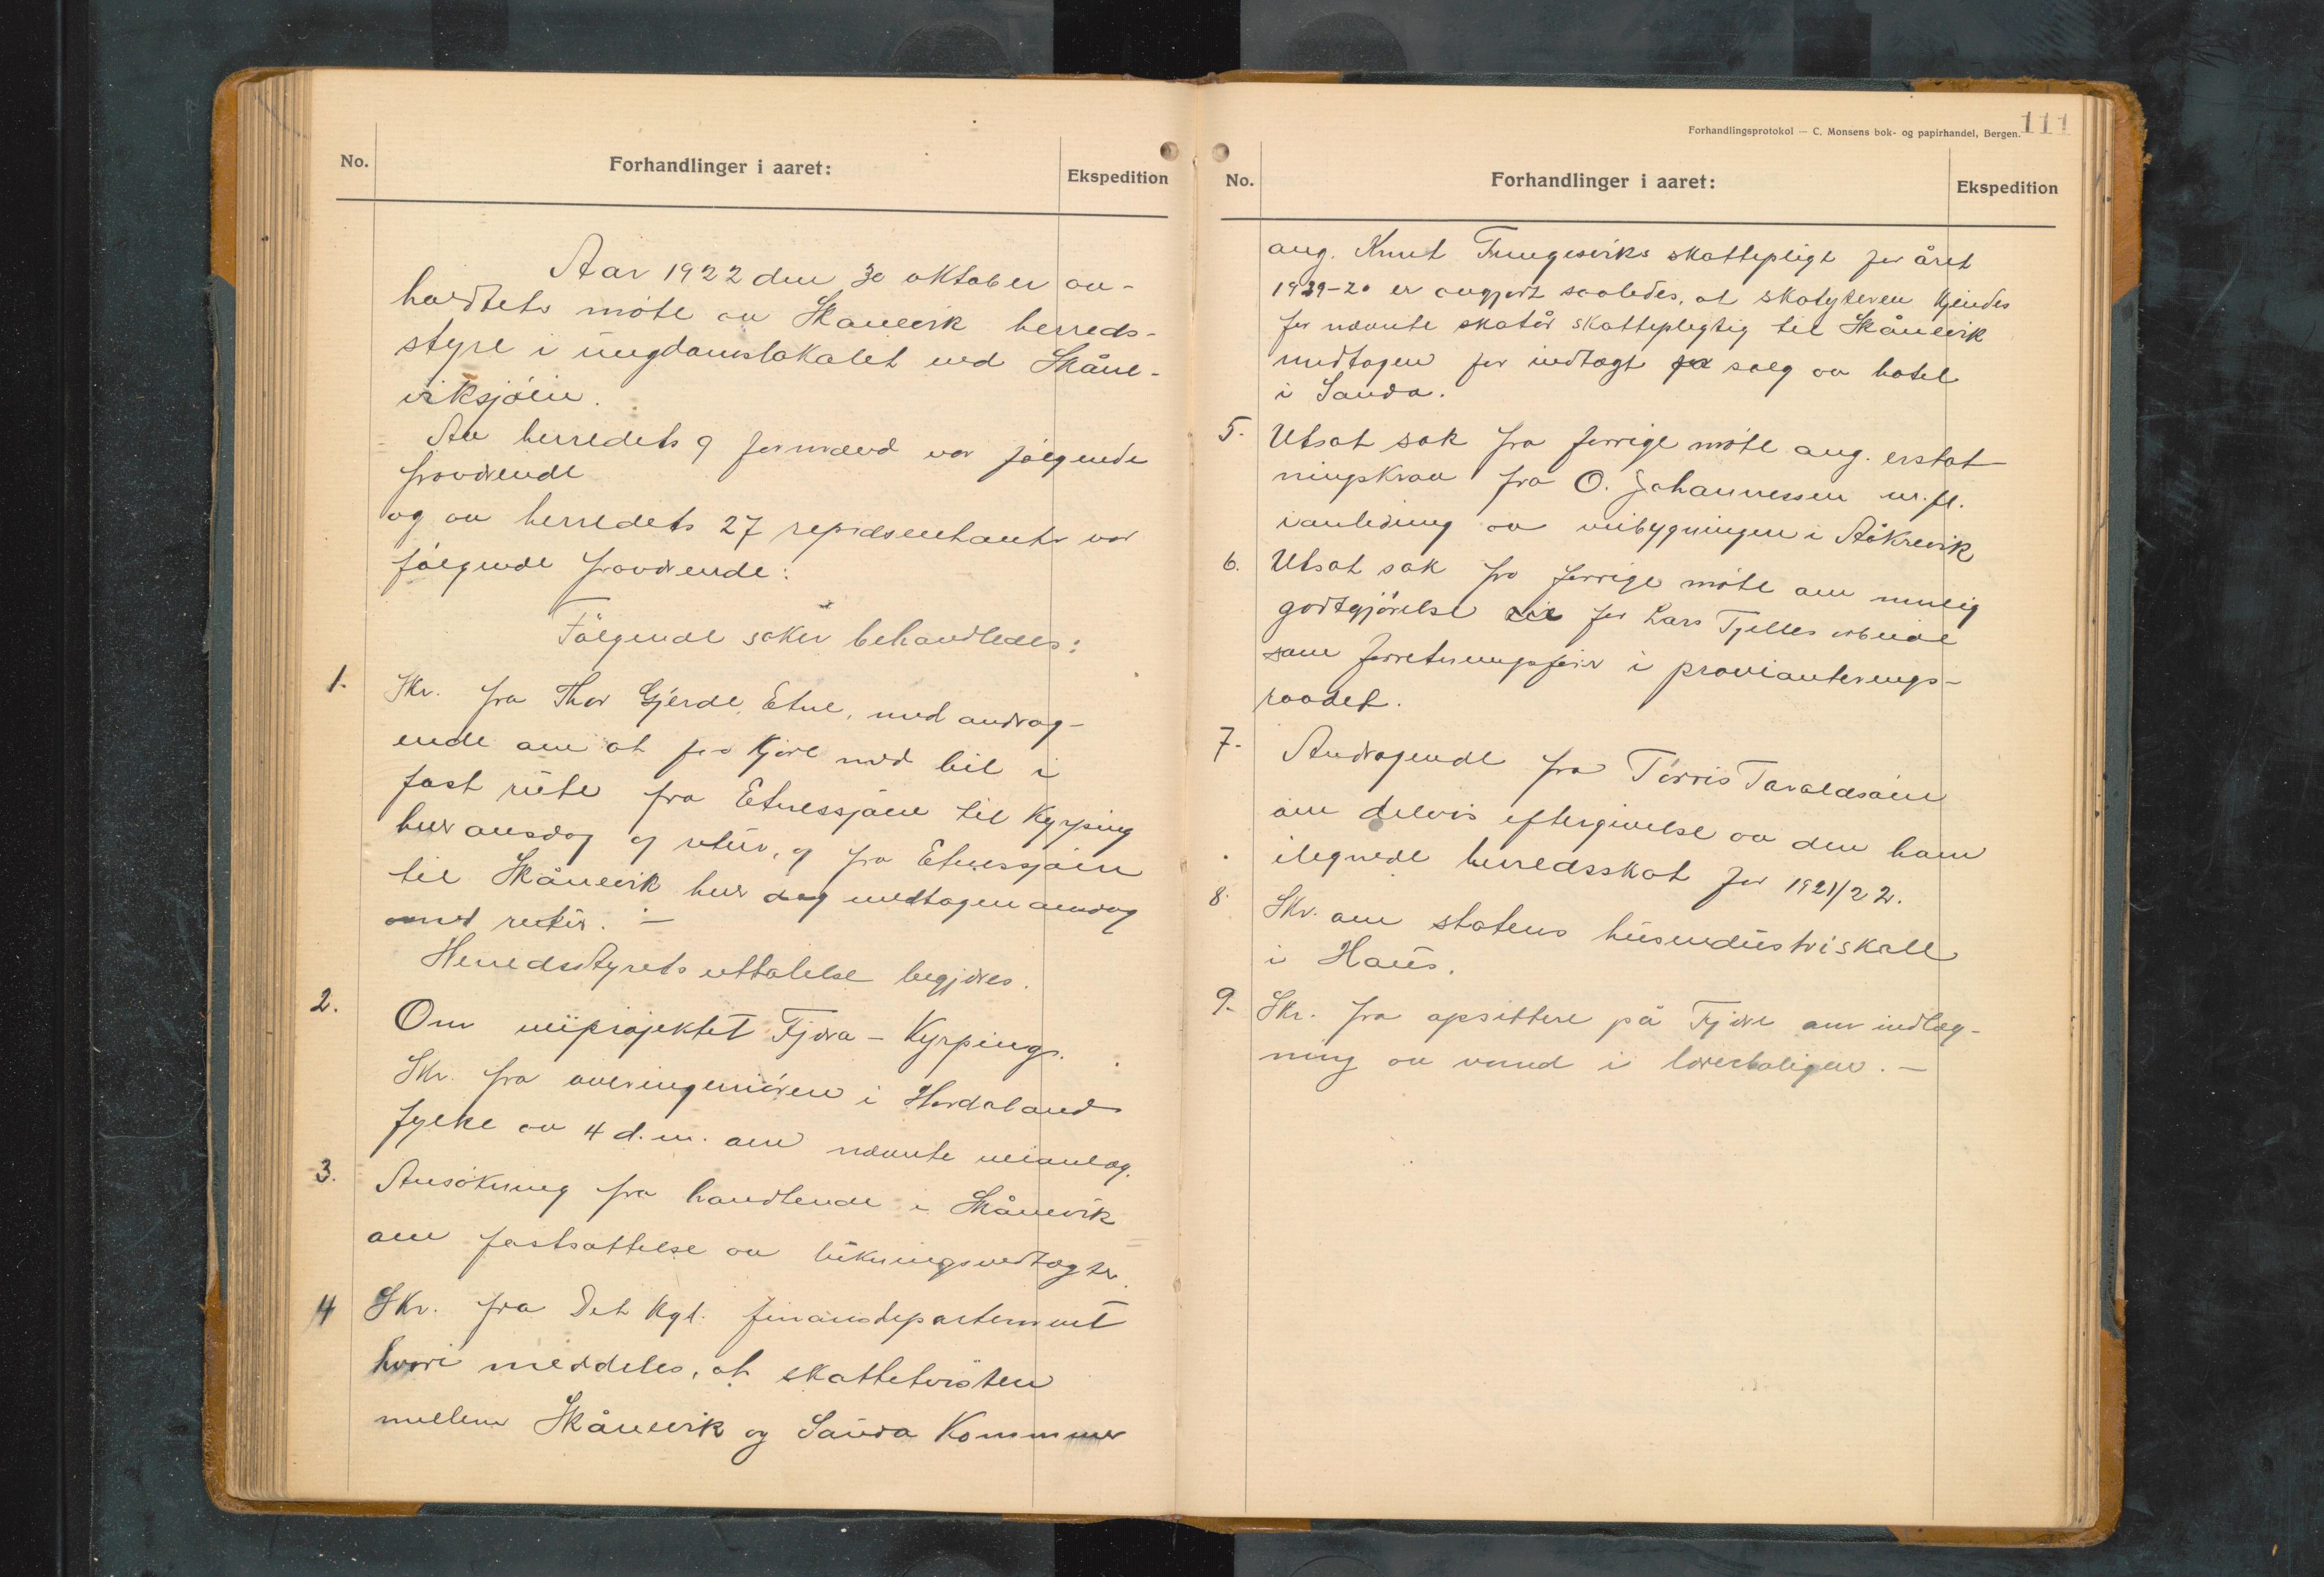 No.
Forhandlinger i aaret:
Ekspedition
Aar 1922 den 30 oktober av-
holdtets møte av Skånevik herreds-
styre i ungdomslokalet ved Skåne-
viksjøin.
Av herredets 9 formænd var følgende
fraværende
og av herredets 27 repræsentanter var
følgende fraværende:
Følgende saker behandledes:
1.
Skr. fra Thor Gjerde, Etne, med andrag-
ende om at faa kjøre med bil i
fast rute fra Etnessjøen til Kyrping
hver onsdag og retur, og fra Etnessjøen
til Skånevik hver dag undtagen onsdag
med retur. —
Herredsstyrets uttalelse begjæres.
2.
Om veiprojektet Fjæra - Kyrping.
Skr. fra overingeniøren i Hordaland
fylke av 4 d.m. om nævnte veianlæg.
3.
Ansøkning fra handlende i Skånevik
om fastsættelse av lukningsvedtægter.
4
Skr. fra Det Kgl. finansdepartement
hvori meddeles, at skattetvisten
mellem Skånevik og Sauda Kommuner
111
Forhandlingsprotokol — C. Monsens bok- og papirhandel, Bergen.
No.
Forhandlinger i aaret:
Ekspedition
ang. Knut Tungesviks skattepligt for året
1919-20 er avgjort saaledes, at skatyteren kjendes
for nævnte skatår skattepligtig til Skånevik
undtagen for indtægt for salg av hotel
i Sauda.
5.
Utsat sak fra forrige møte ang. erstat-
ningskrav fra O. Johannessen m.fl.
i anledning av veibygningen i Åkrevik
6.
Utsat sak fra forrige møte om mulig
godtgjørelse for Lars Tjelles arbeide
som forretningsfører i provianterings-
raadet.
7.
Andragende fra Tørris Taraldsøen
om delvis eftergivelse av den ham
ilignede herredsskat for 1921/22.
8.
Skr. om statens husindustriskole
i Haus.
9.
Skr. fra opsittere på Fjære om indlæg-
ning av vand i lærerboligen. —